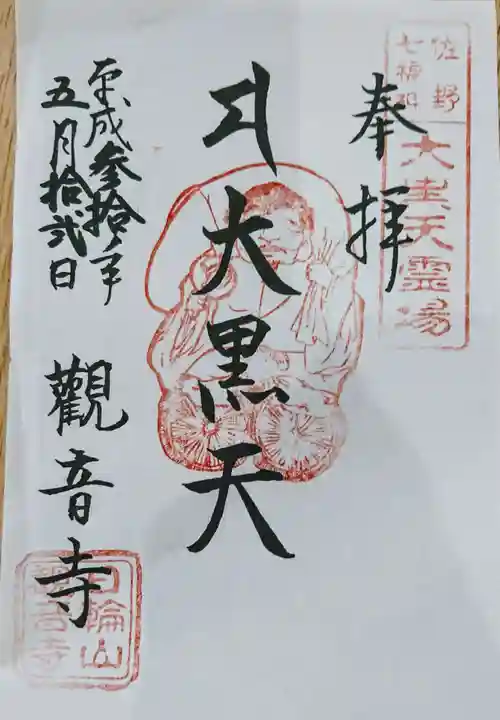 佐野
七福神
大黒天霊場
奉拝
大黒天
平成参拾年
五月拾弐日
觀音寺
日輪山
觀音寺